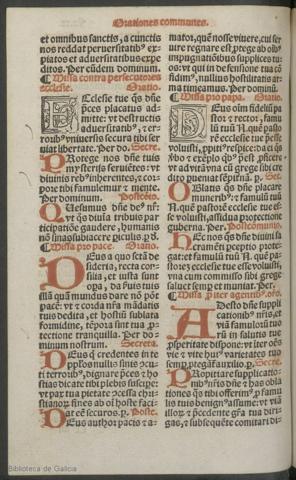 Orationes communes.
et omnibus sanctis, a cunctis
nos reddat peruersitatib⁹ ex-
piatos et aduersitatibus expe
ditos. Per eūdem dominum.
¶ Missa contra persecutores
ecclesie. Oratio.
Ecclesie tue q̄s dn̄e
p̄ces placatus ad
mitte: vt destructis
aduersitatib⁹, ⁊ er-
rorib⁹ vniuersis secura tibi ser
uiat libertate. Per do. Secre.
Protege nos dn̄e tuis
mysterijs seruiētes: vt
diuinis reb⁹ inherentes, ⁊ cor
pore tibi famulemur ⁊ mente.
Per dominum. Postcōio.
Quesumus dn̄e de⁹ nr̄
vt q̄s diuīa tribuis par
ticipatiōe gaudere, humanis
nō sinas subiacere piculis. p̄ d.
¶ Missa pro pace. Oratio.
Deus a quo sctā de
sideria, recta con
silia, et iusta sunt
opa, da suis tuis
illā quā mundus dare nō pōt
pacē: vt ⁊ corda nr̄a mādatis
tuis dedita, et hostiū sublata
formidine, tēpora sint tua p̄-
tectione tranquilla. Per do-
minum nostrum. Secreta.
Deus q̄ credentes in te
pplos nullis sinis ɔcu
ti terrorib⁹, dignare p̄ces ⁊ ho
stias dicate tibi plebis suscipe:
vt pax tua pietate ɔcessa chri
stianor̄ fines ab oī hoste faci-
at eē securos. p. Poste.
Deus author pacis ⁊ a-
mator, quē nosse viuere, cui ser
uire regnare est, p̄tege ab oīb⁹
impugnatiōibus supplices tu-
os: vt qui in defensione tua cō
fidim⁹, nullius hostilitatis ar-
ma timeamus. Per dominū.
¶ Missa pro papa. Oratio.
Deus oīm fidelíū pa
stor ⁊ rector, famu
lū tuū N. quē pasto
rē ecclesie tue p̄esse
voluisti, ppiti⁹ respice: da ei q̄s
v̄bo ⁊ exēplo qb⁹ p̄est ,pficere,
vt ad vitā vna cū grege sibi cre
dito pueniat sēpiterā. p.
Oblatis q̄s dn̄e placare
munerib⁹: ⁊ famulū tuū
N. quē pastorē ecclesie tue ee-
se voluisti, assidua protectione
guberna. Per. Postcōmunio.
Hec nos q̄s dn̄e diuini sa
cramēti peceptio prote-
gat: et famulū tuū N. quē pa-
storē ecclesie tue esse voluisti,
vna cum commisso sibi grege
saluet semp et muniat. Per.
¶ Missa p iter agentib⁹. oro.
Adesto dn̄e suppli
cationib⁹ nr̄is, et
viā famulorū tuo
rū in salutis tue
psperitate dispone: vt iter oēs
vie ⁊ vite hui⁹ varietates tuo
semp, ptegāt̄ auxilio. p. Secre.
Propitiare supplicatio-
nib⁹ nr̄is dn̄e ⁊ has obla
tiones q̄s tibi offerim⁹ p famu
lis tuis benign⁹ assume: vt viā
illor̄ ⁊ p̄cedente gr̄a tua diri-
gas, ⁊ subsequēte comitari di-
Biblioteca de Galicia